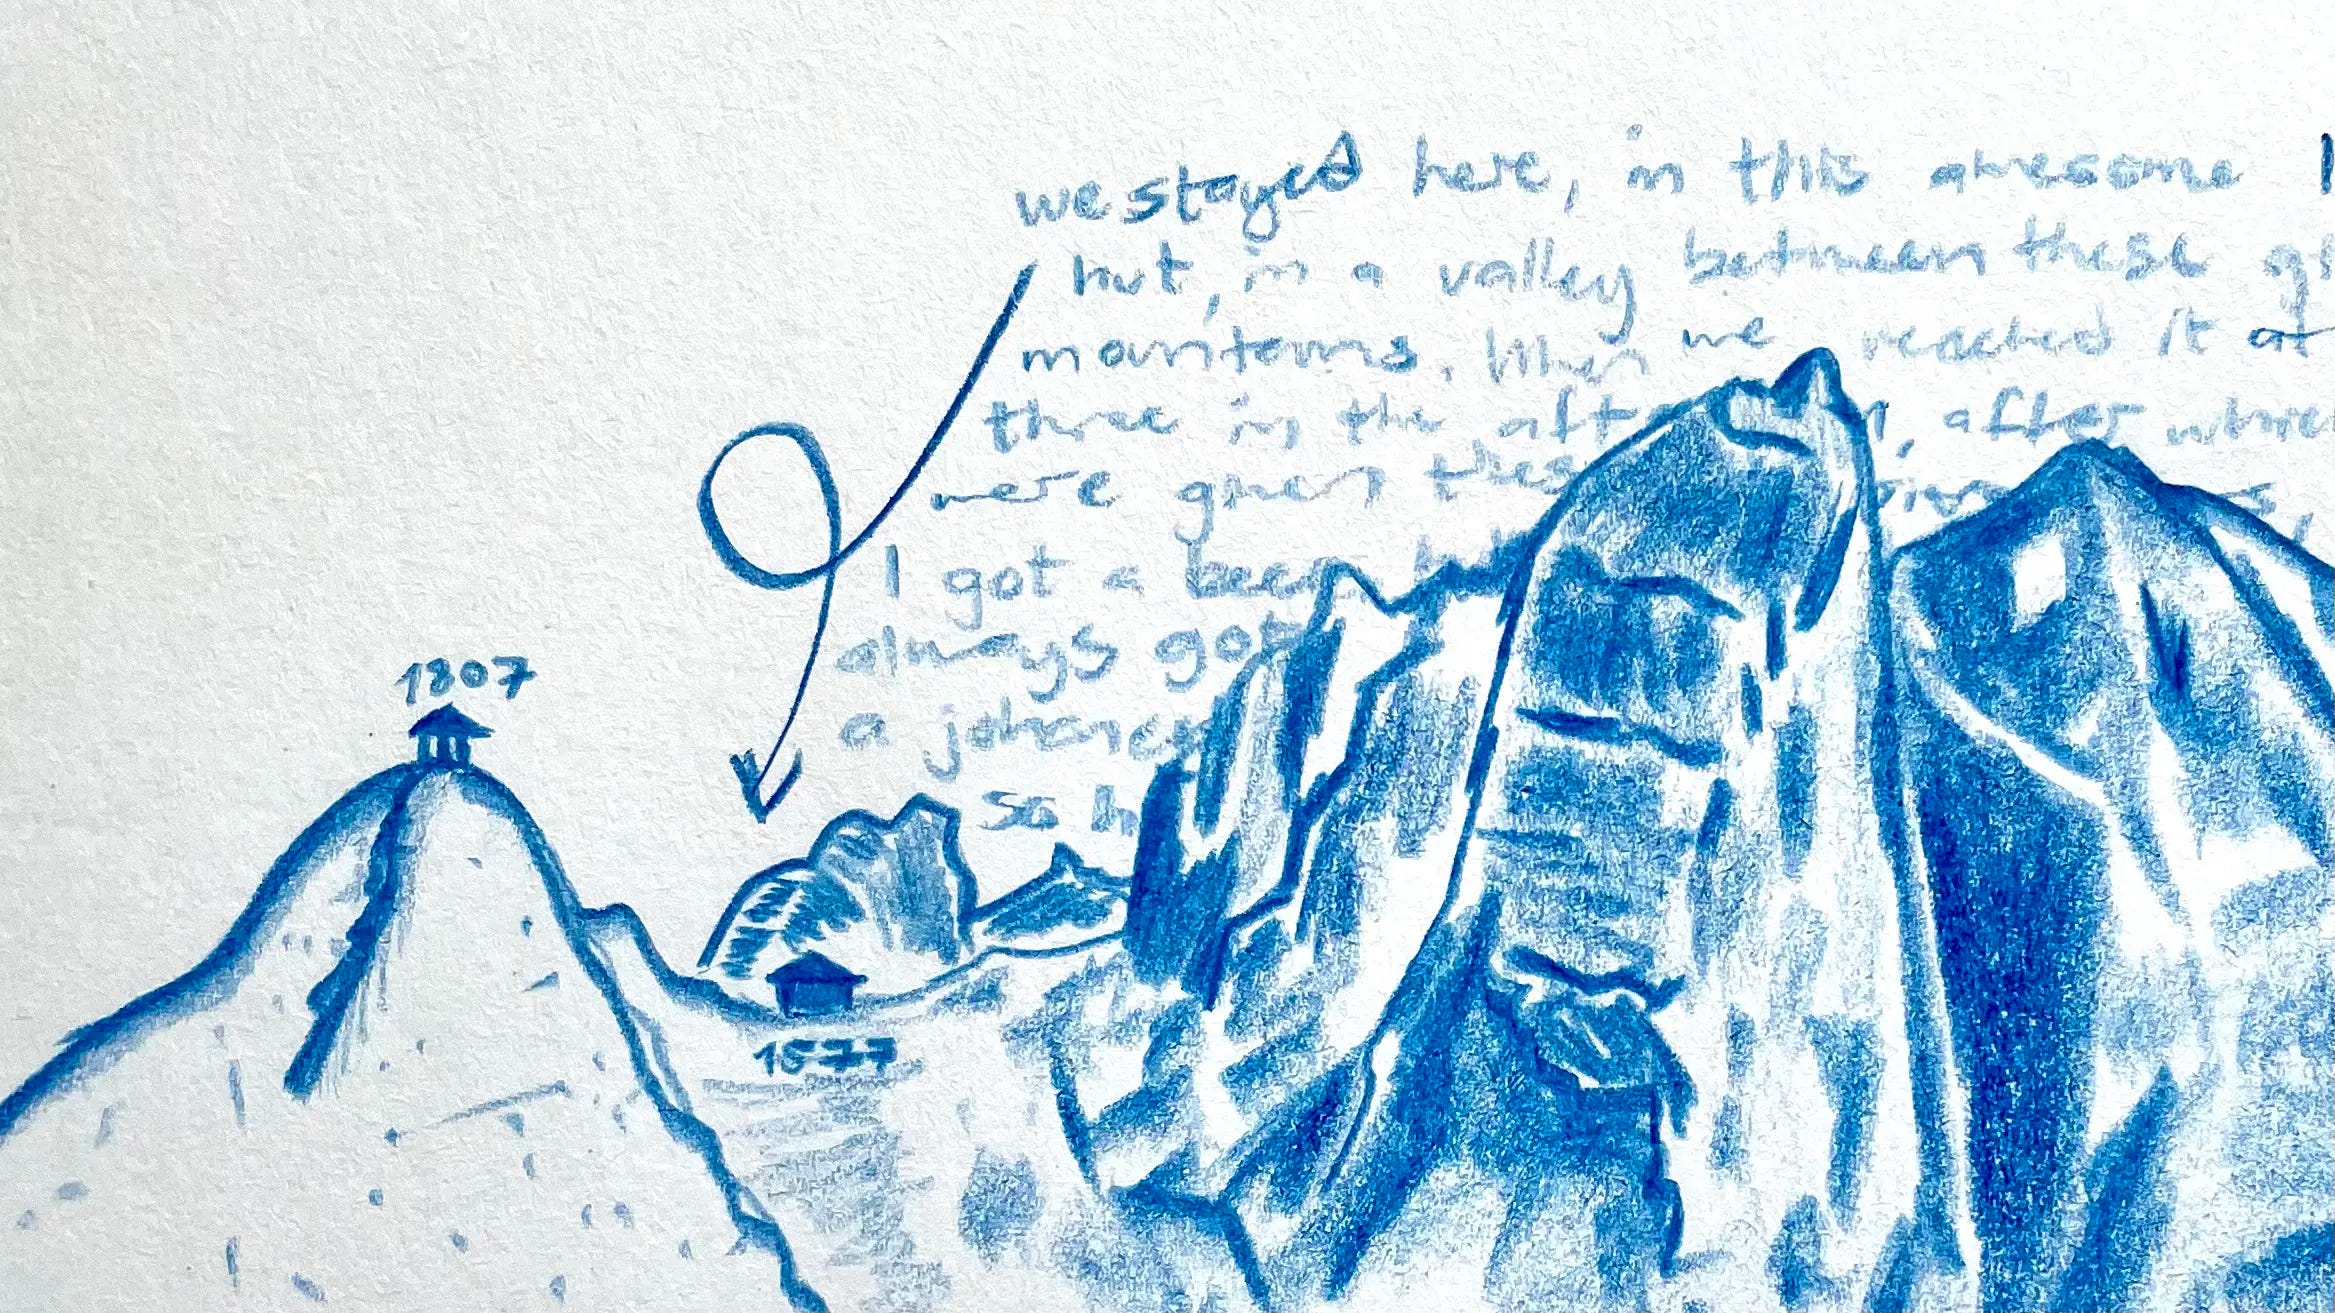 we stayed here, in this awesome
hut, in a valley between these
mountains. When we reached it at
three in the after
were given these
I got a beer
always got
a journey
so
1807
1577